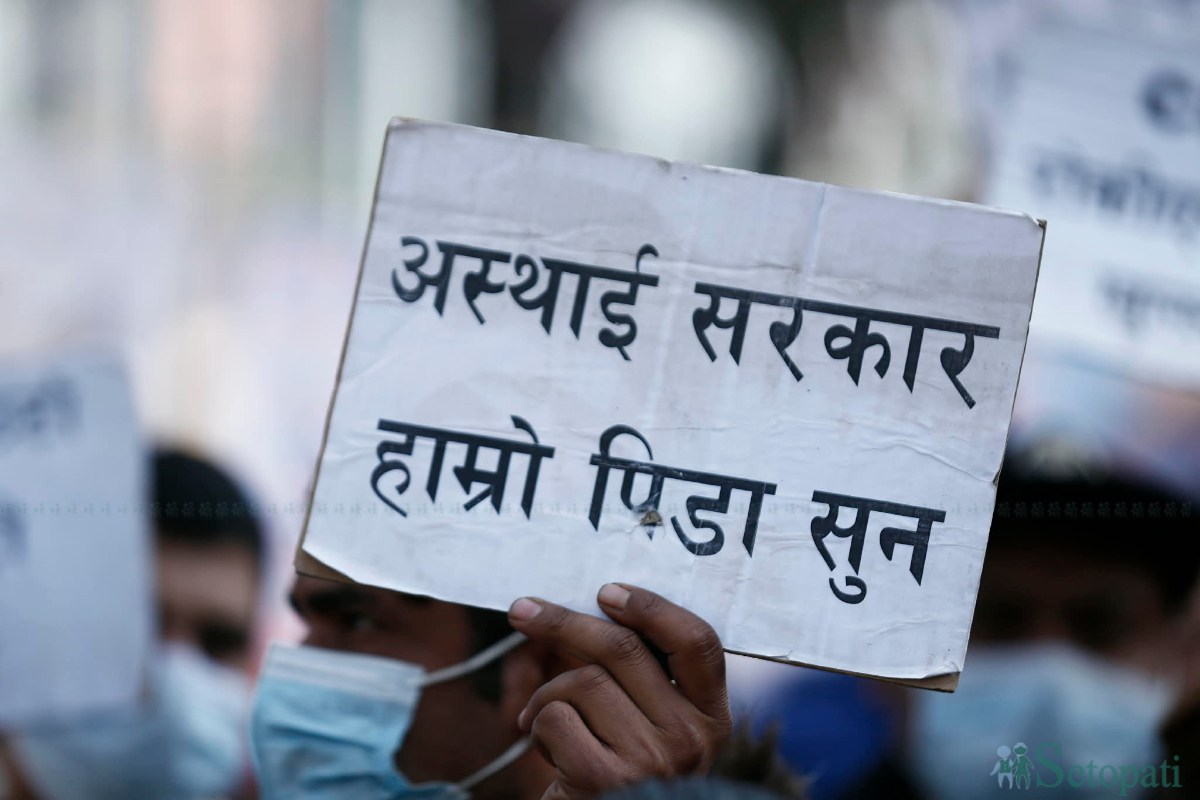 अस्थाई सरकार
हाम्रो पिडा सुन
Setopati